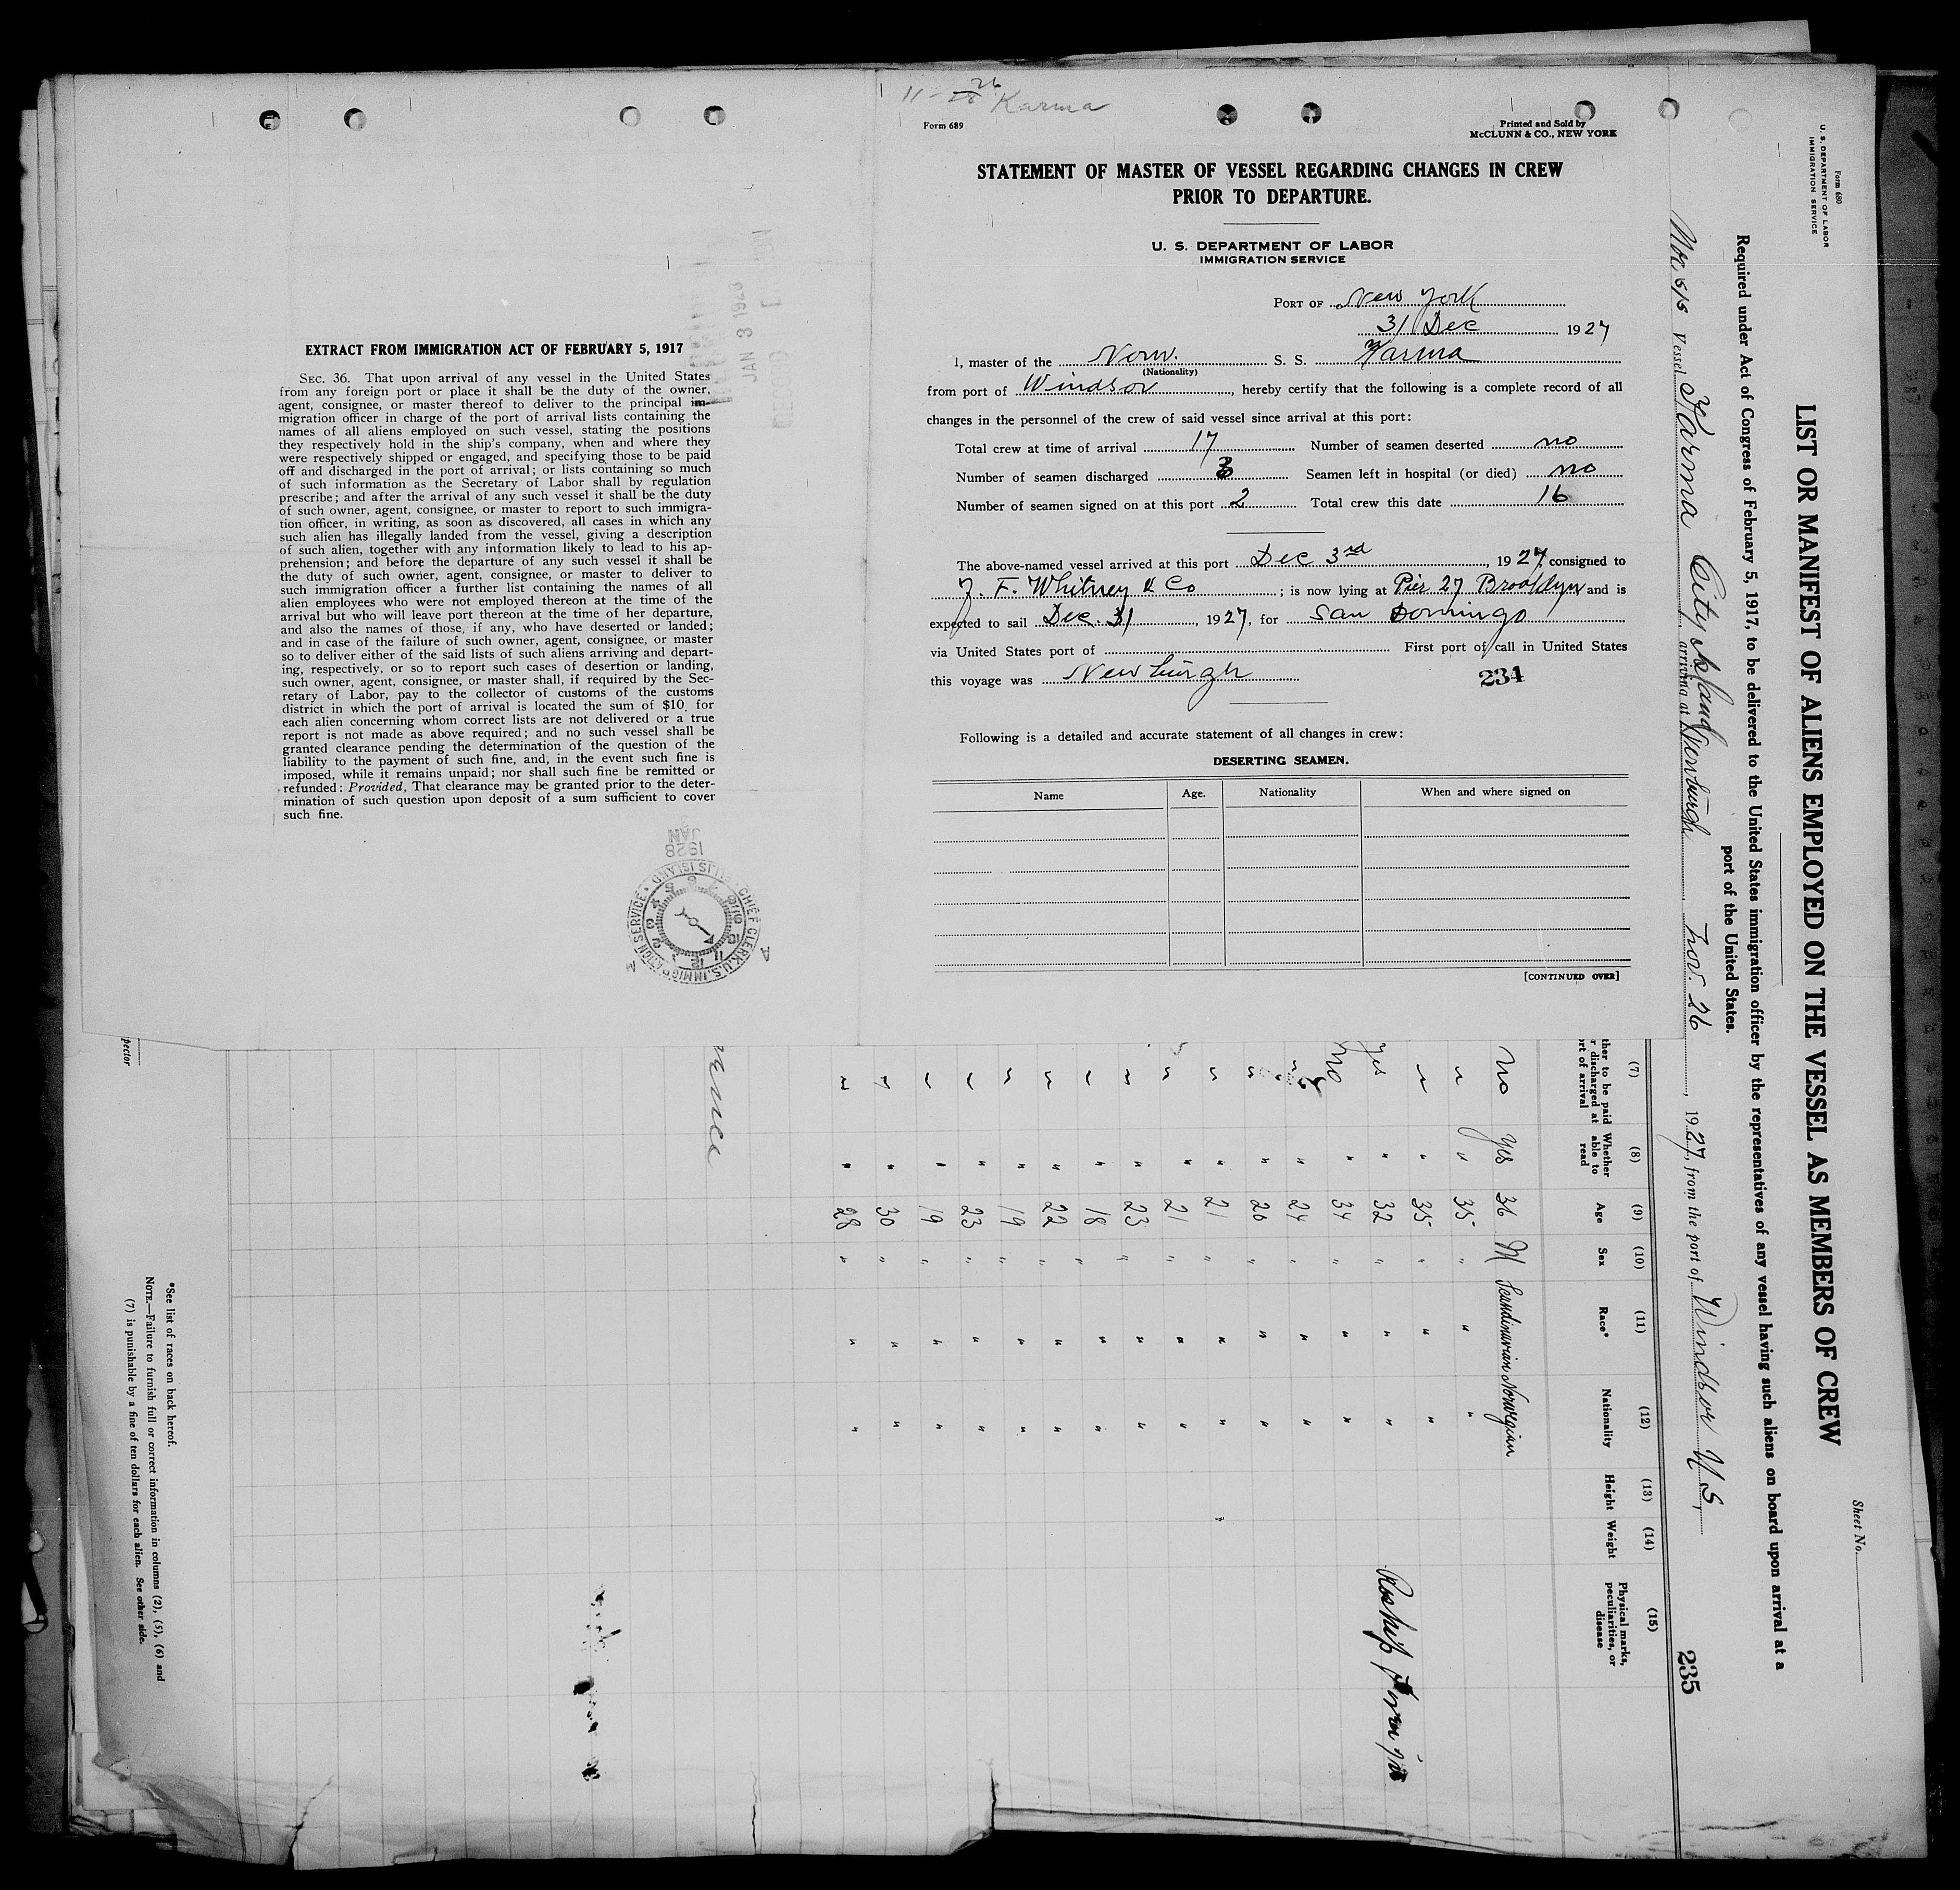 11-28 26 Karma
Form 689
Printed and Sold by
McCLUNN & CO., NEW YORK
STATEMENT OF MASTER OF VESSEL REGARDING CHANGES IN CREW
PRIOR TO DEPARTURE.
U. S. DEPARTMENT OF LABOR
IMMIGRATION SERVICE
PORT OF New York
31 Dec 1927
I, master of the Norw. S. S. Karma
(Nationality)
from port of Windsor, hereby certify that the following is a complete record of all
changes in the personnel of the crew of said vessel since arrival at this port:
Total crew at time of arrival 17 Number of seamen deserted no
Number of seamen discharged 3 Seamen left in hospital (or died) no
Number of seamen signed on at this port 2 Total crew this date 16
The above-named vessel arrived at this port Dec 3rd, 1927, consigned to
J. F. Whitney & Co; is now lying at Pier 27 Brooklyn and is
expected to sail Dec. 31, 1927, for San Domingo
via United States port of First port of call in United States
this voyage was Newburgh
234
Following is a detailed and accurate statement of all changes in crew:
DESERTING SEAMEN.
Name Age. Nationality When and where signed on
[CONTINUED OVER]
EXTRACT FROM IMMIGRATION ACT OF FEBRUARY 5, 1917
SEC. 36. That upon arrival of any vessel in the United States
from any foreign port or place it shall be the duty of the owner,
agent, consignee, or master thereof to deliver to the principal im-
migration officer in charge of the port of arrival lists containing the
names of all aliens employed on such vessel, stating the positions
they respectively hold in the ship's company, when and where they
were respectively shipped or engaged, and specifying those to be paid
off and discharged in the port of arrival; or lists containing so much
of such information as the Secretary of Labor shall by regulation
prescribe; and after the arrival of any such vessel it shall be the duty
of such owner, agent, consignee, or master to report to such immigra-
tion officer, in writing, as soon as discovered, all cases in which any
such alien has illegally landed from the vessel, giving a description
of such alien, together with any information likely to lead to his ap-
prehension; and before the departure of any such vessel it shall be
the duty of such owner, agent, consignee, or master to deliver to
such immigration officer a further list containing the names of all
alien employees who were not employed thereon at the time of the
arrival but who will leave port thereon at the time of her departure,
and also the names of those, if any, who have deserted or landed;
and in case of the failure of such owner, agent, consignee, or master
so to deliver either of the said lists of such aliens arriving and depart-
ing, respectively, or so to report such cases of desertion or landing,
such owner, agent, consignee, or master shall, if required by the Sec-
retary of Labor, pay to the collector of customs of the customs
district in which the port of arrival is located the sum of $10. for
each alien concerning whom correct lists are not delivered or a true
report is not made as above required; and no such vessel shall be
granted clearance pending the determination of the question of the
liability to the payment of such fine, and, in the event such fine is
imposed, while it remains unpaid; nor shall such fine be remitted or
refunded: Provided, That clearance may be granted prior to the deter-
mination of such question upon deposit of a sum sufficient to cover
such fine.
JAN 3 1928
JAN
1928
CHIEF CLERK, U.S. IMMIGRATION SERVICE ELLIS ISLAND
A M
Form 680
U. S. DEPARTMENT OF LABOR
IMMIGRATION SERVICE
Sheet No.
LIST OR MANIFEST OF ALIENS EMPLOYED ON THE VESSEL AS MEMBERS OF CREW
Required under Act of Congress of February 5, 1917, to be delivered to the United States immigration officer by the representatives of any vessel having such aliens on board upon arrival at a
port of the United States.
Nor. s/s Vessel Karma City Island arriving at Newburgh Nov. 26, 1927, from the port of Windsor N S,
235
(7) (8) (9) (10) (11) (12) (13) (14) (15)
ther to be paid
r discharged at
rt of arrival
Whether
able to
read
Age Sex Race* Nationality Height Weight
Physical marks,
peculiarities, or
disease
no Yes 36 M Scandinavian Norwegian
" " 35 " " "
" " 35 " " "
Yes " 32 " " "
no " 34 " " "
" " 24 " " "
" " 20 " " "
" " 21 " " "
" " 21 " " "
" " 23 " " "
" " 18 " " "
" " 22 " " "
" " 19 " " "
" " 23 " " "
" " 19 " " "
" " 30 " " "
" " 28 " " "
pector
*See list of races on back hereof.
NOTE.—Failure to furnish full or correct information in columns (2), (5), (6) and
(7) is punishable by a fine of ten dollars for each alien. See other side.